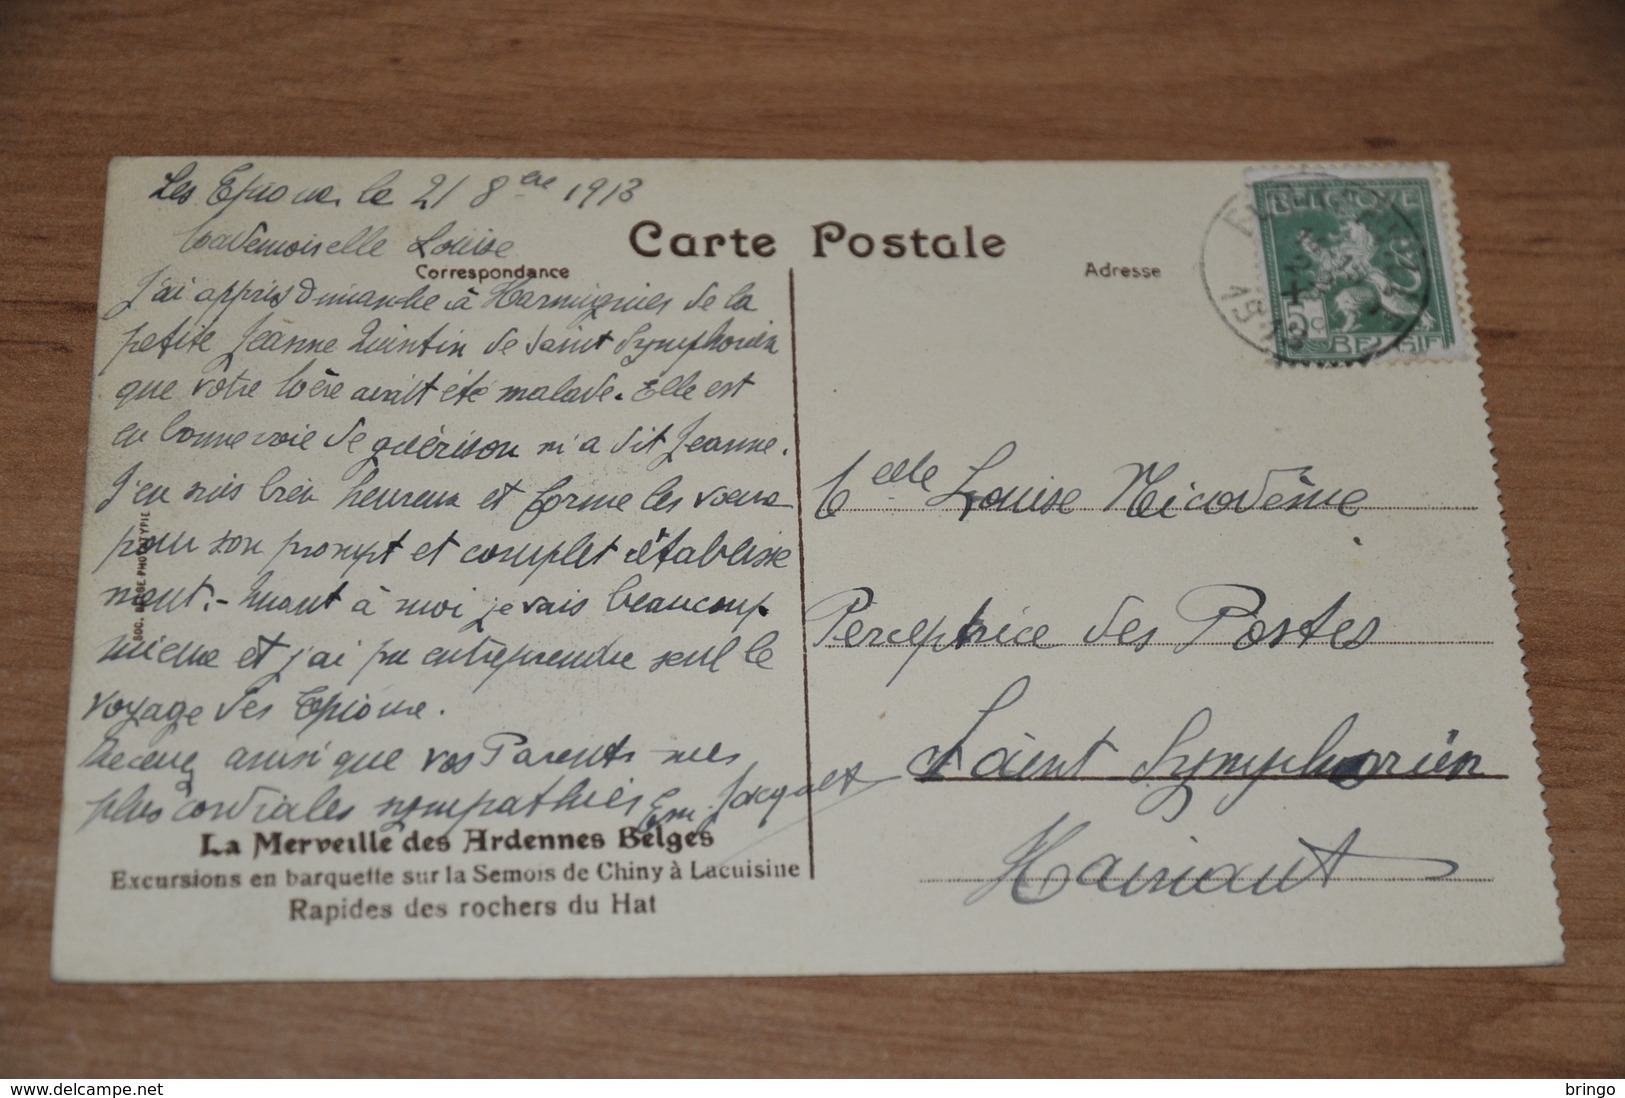 Les Epioux le 21 8bre 1913
Mademoiselle Louise
Carte Postale
Correspondance
Adresse
J'ai appris dimanche à Harmignies de la
petite Jeanne Quintin de Saint Symphorien
que votre Mère avait été malade. Elle est
en bonne voie de guérison m'a dit Jeanne.
J'en suis bien heureux et forme les voeux
pour son prompt et complet rétablisse
ment. - Quant à moi je vais beaucoup
mieux et j'ai pu entreprendre seul le
voyage des Epioux.
Recevez ainsi que vos Parents mes
plus cordiales sympathies Em. Jacquet
La Merveille des Ardennes Belges
Excursions en barquette sur la Semois de Chiny à Lacuisine
Rapides des rochers du Hat
SOC. BELGE PHOTOTYPIE
BELGIQUE
5 c
BELGIË
1913
Melle Louise Nicodème
Perceptrice des Postes
Saint Symphorien
Hainaut
delcampe.net
bringo